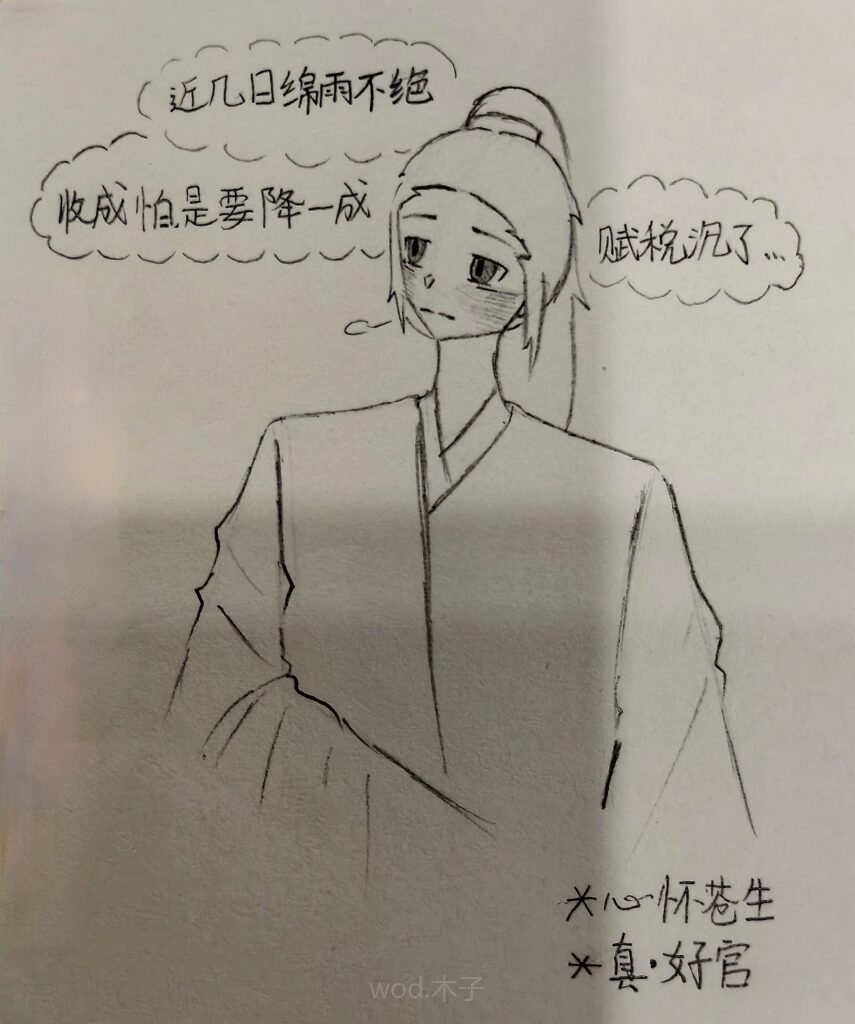 近几日绵雨不绝
收成怕是要降一成
赋税沉了...
*心怀苍生
*真·好官
wod.木子